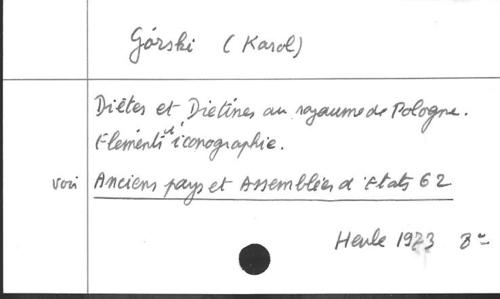 Górski (Karol)
Diètes et Diétines au royaume de Pologne.
Eléments d'iconographie.
voir Anciens pays et Assemblées d'Etats 62
Heule 1973 8°